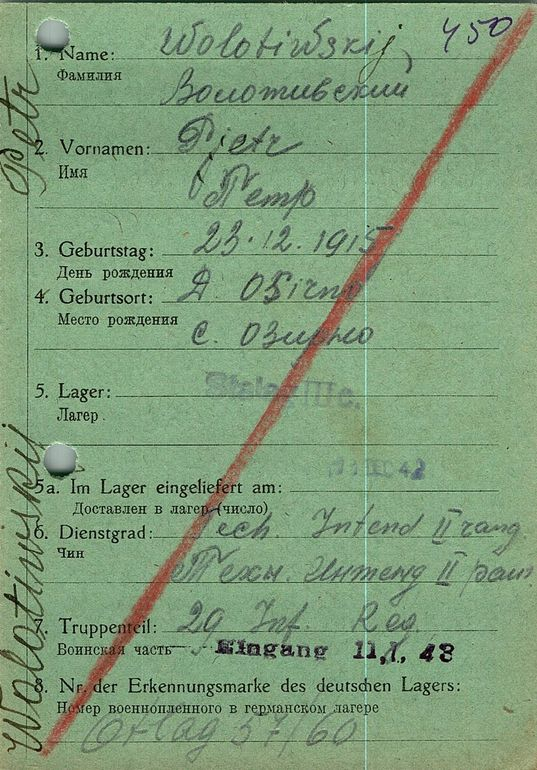 450
1. Name: Wolotiwskij
Фамилия Волотивский
2. Vornamen: Pjetr
Имя Петр
3. Geburtstag: 23.12.1915
День рождения
4. Geburtsort: D. OSirno
Место рождения С. Озирно
5. Lager: Stalag III c.
Лагер
5a. Im Lager eingeliefert am:
Доставлен в лагер (число)
6. Dienstgrad: Tech. Intend II rang
Чин Техн. Интенд II ранг
7. Truppenteil: 29 Inf. Reg
Воинская часть Eingang 11.1.43
8. Nr. der Erkennungsmarke des deutschen Lagers:
Номер военнопленного в германском лагере
57/60
Wolotiwskij Petr